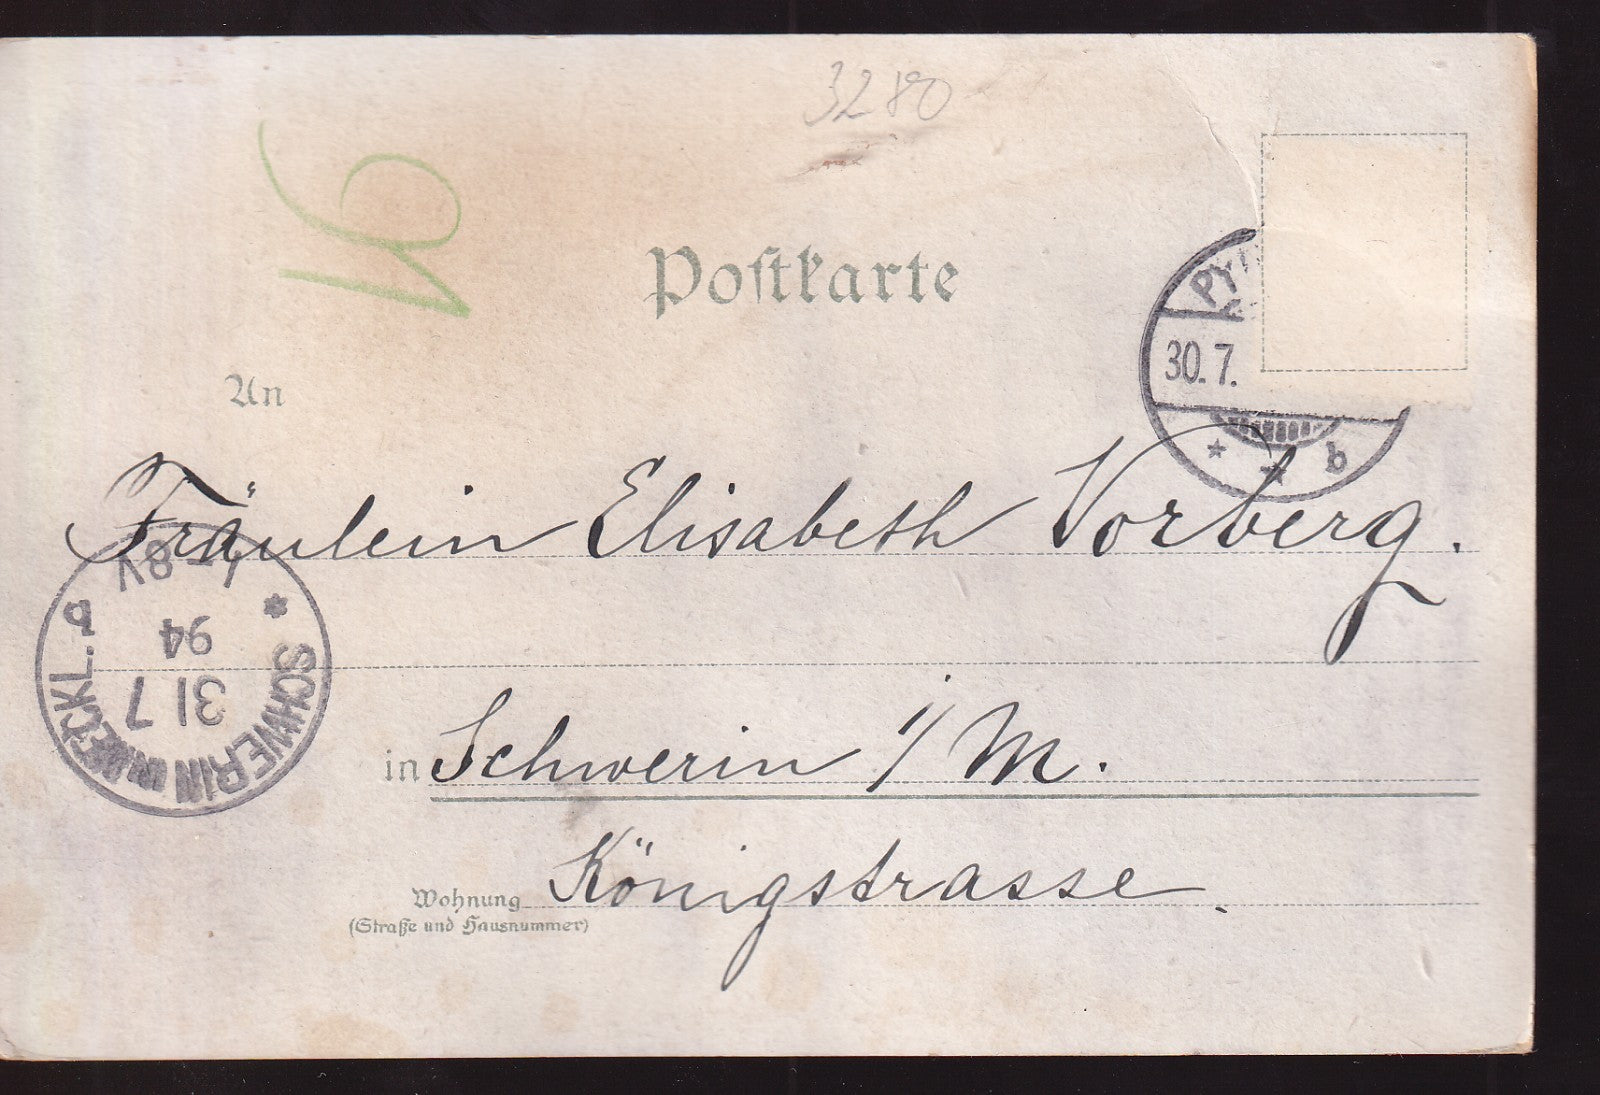 3280
Postkarte
An
30.7.
b
Fräulein Elisabeth Vorberg.
7-8V
94
31 7
SCHWERIN MECKL. a
in Schwerin i/M.
Wohnung Königstrasse.
(Straße und Hausnummer)